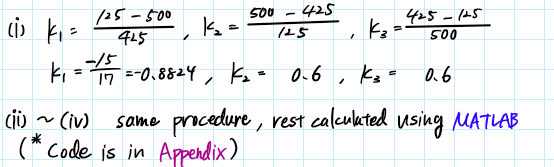 (i) k₁ = (125 - 500)/425 , k₂ = (500 - 425)/125 , k₃ = (425 - 125)/500
k₁ = -15/17 = -0.8824 , k₂ = 0.6 , k₃ = 0.6
(ii) ~ (iv) same procedure, rest calculated using MATLAB
(* Code is in Appendix)